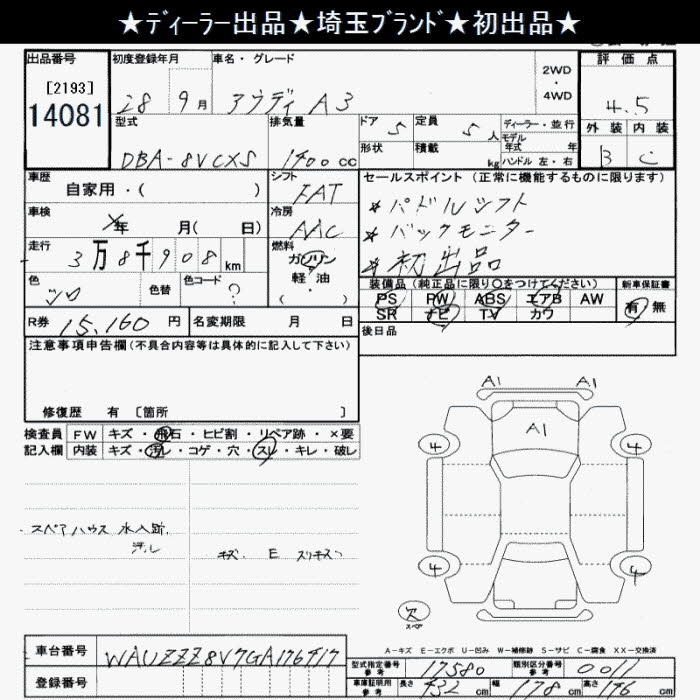 ★ディーラー出品★埼玉ブランド★初出品★
出品番号
[2193]
14081
初度登録年月
28 9月
車名・グレード
アウディ A3
2WD
・
4WD
評価点
4.5
外装 内装
B C
型式
DBA-8VCXS
排気量
1400cc
ドア 5
定員 5人
形状
積載 kg
ディーラー・並行
モデル
年式 年
ハンドル 左・右
車歴
自家用・( )
シフト
FAT
車検
年 月( 日)
冷房
AAC
走行
3万8千908km
燃料
ガソリン
軽・油
( ・ )
色
シロ
色替
色コード ?
セールスポイント (正常に機能するものに限ります)
★パドルシフト
★バックモニター
★初出品
装備品 (純正品に限り○をつけてください)
PS PW ABS エアB AW
SR ナビ TV カワ
新車保証書
有 無
R券 15,160円
名変期限 月 日
後日品
注意事項申告欄 (不具合内容等は具体的に記入して下さい)
修復歴 有 [箇所 ]
検査員 FW キズ・飛石・ヒビ割・リペア跡・×要
記入欄 内装 キズ・汚レ・コゲ・穴・スレ・キレ・破レ
スペアハウス 水入跡,
汚レ
キズ. E スリキズ
A1 A1
A1
4 4
4 4
欠
スペア
A-キズ E-エクボ U-凹み W-補修跡 S-サビ C-腐食 XX-交換済
車台番号
WAUZZZ8V7GA176417
登録番号
型式指定番号
参考
17580
類別区分番号
参考
0011
車庫証明用
参考
長さ 432cm 幅 178cm 高さ cm